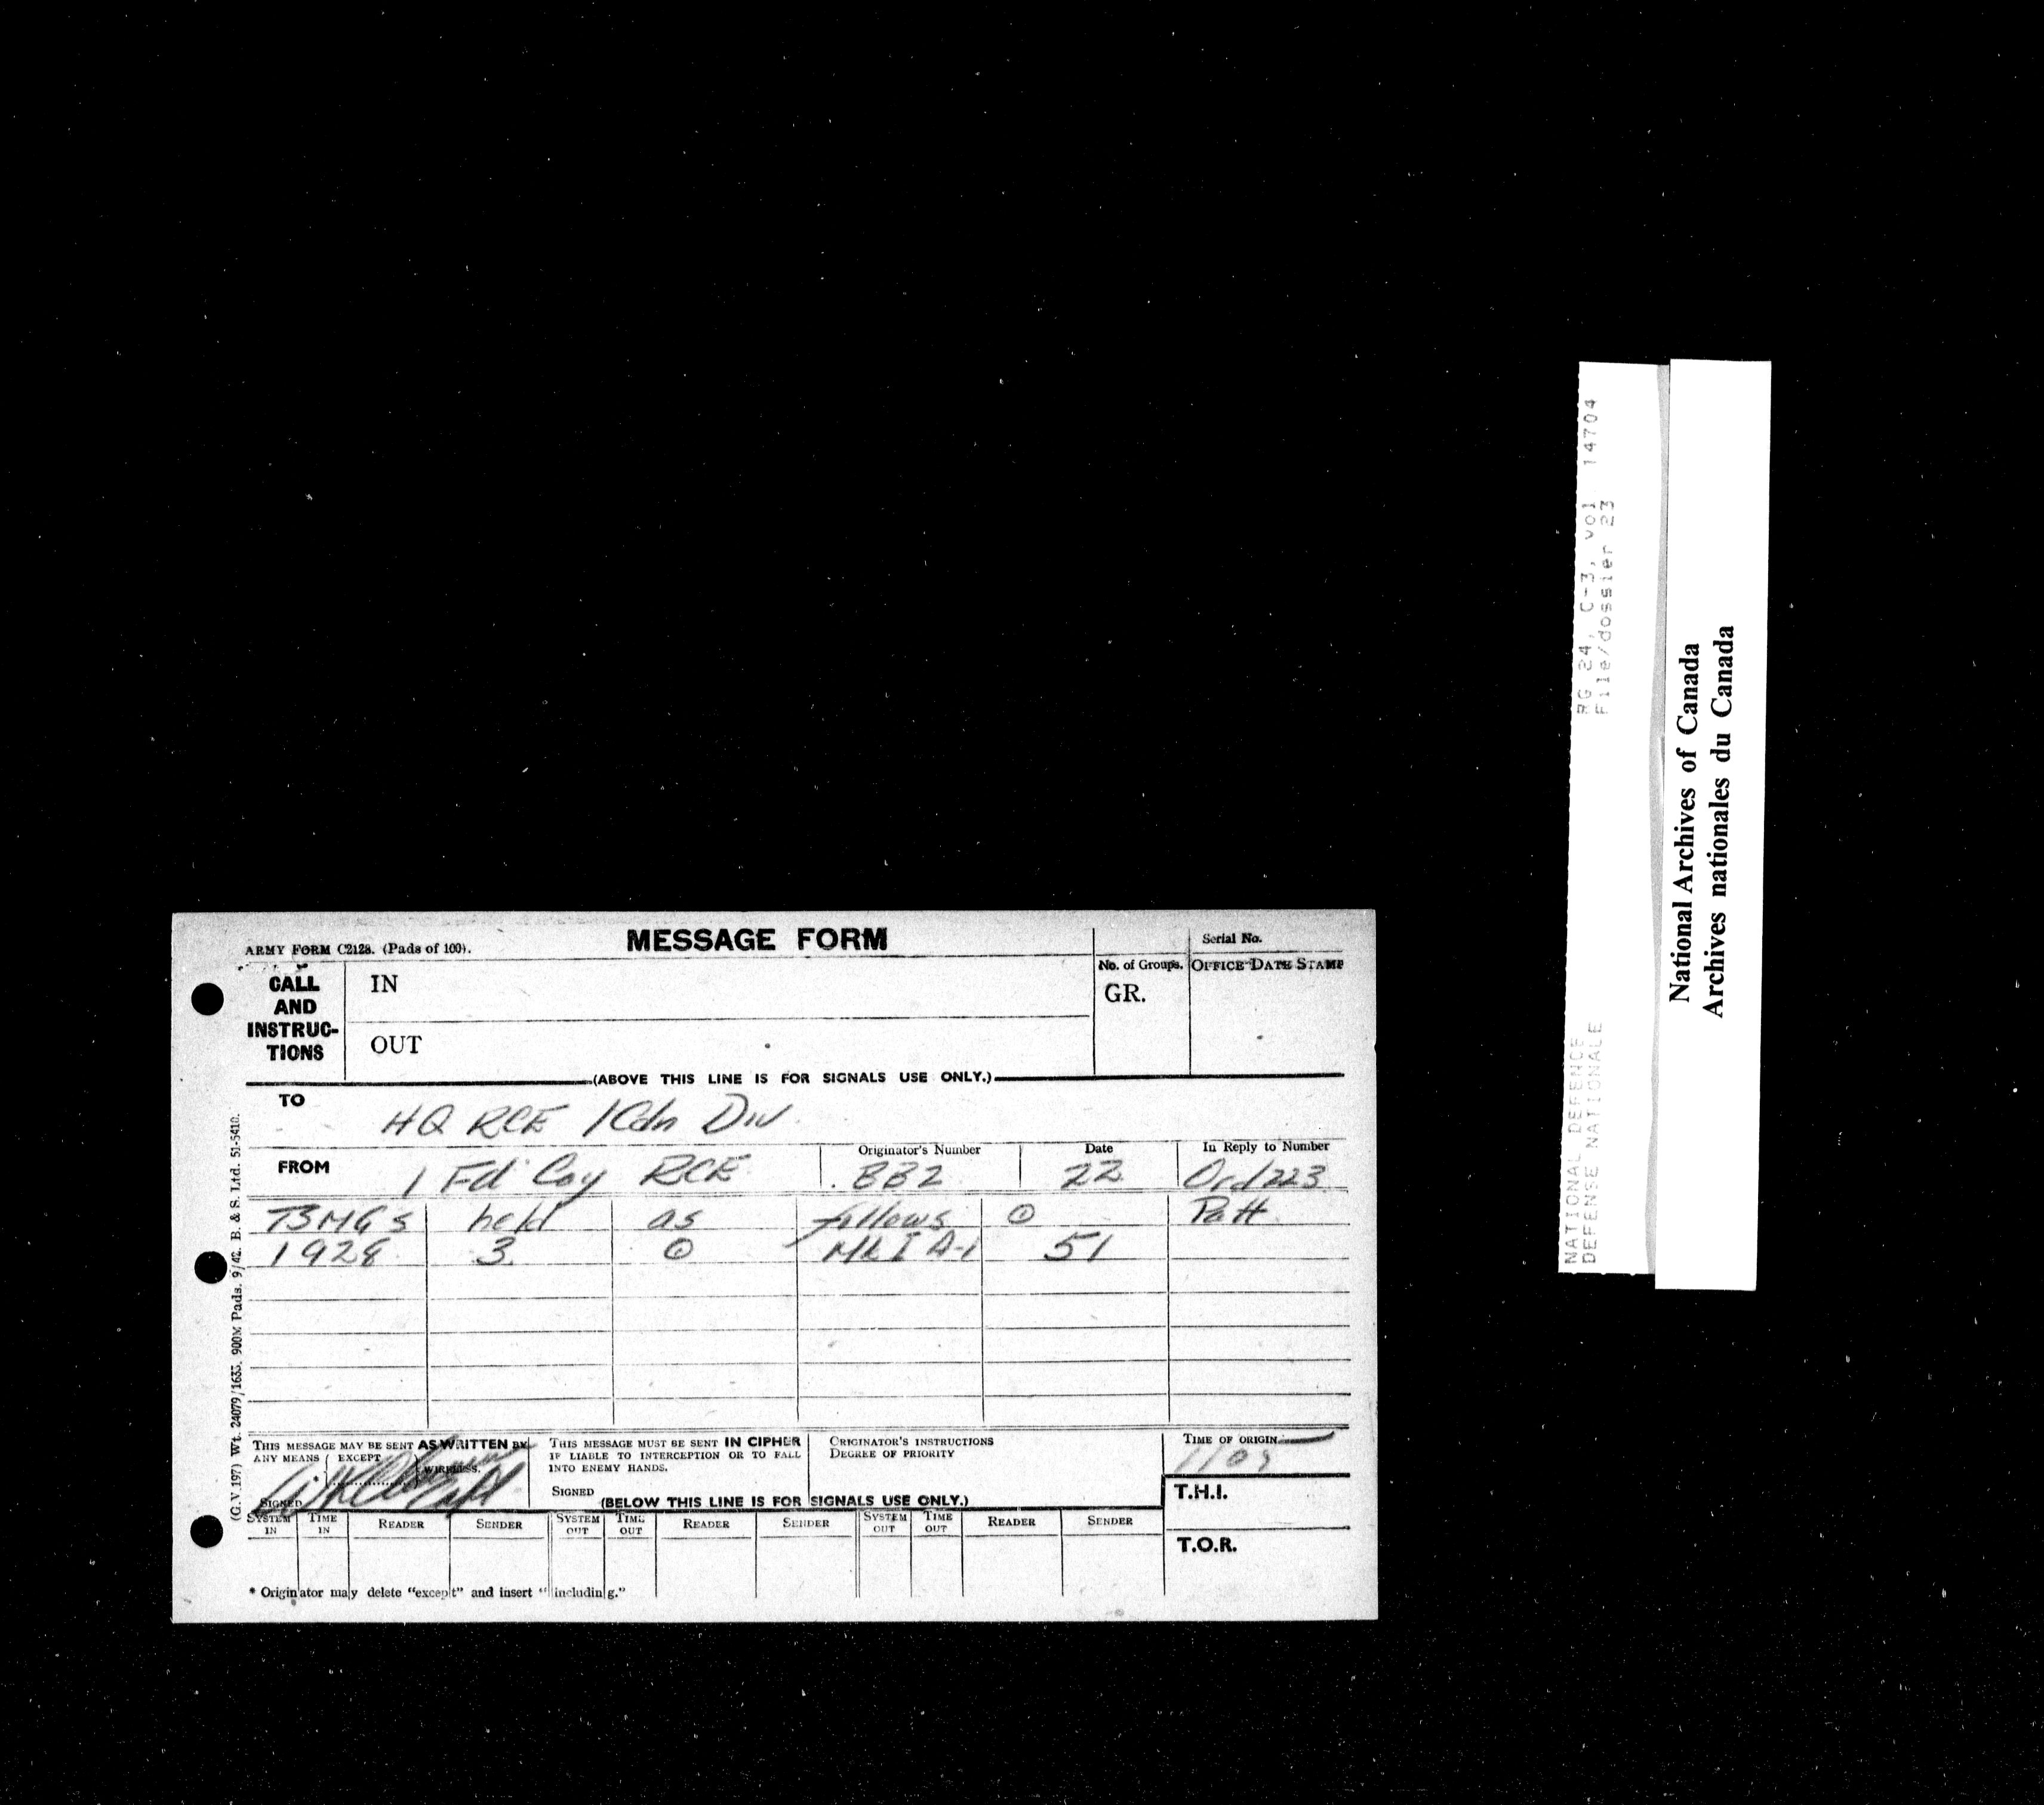 ARMY FORM C2128. (Pads of 100).
MESSAGE FORM
Serial No.
CALL AND INSTRUC-TIONS
IN
No. of Groups.
OFFICE DATE STAMP
GR.
OUT
(ABOVE THIS LINE IS FOR SIGNALS USE ONLY.)
TO
HQ RCE 1 Cdn Div
FROM
1 Fd Coy RCE
Originator's Number
BB2
Date
22
In Reply to Number
Ord 223
TSMGs held as follows ⊙ Patt
1928 3 ⊙ Mk I A-1 51
THIS MESSAGE MAY BE SENT AS WRITTEN BY
ANY MEANS EXCEPT
WIRELESS.
SIGNED
Capt
THIS MESSAGE MUST BE SENT IN CIPHER
IF LIABLE TO INTERCEPTION OR TO FALL
INTO ENEMY HANDS.
SIGNED
ORIGINATOR'S INSTRUCTIONS
DEGREE OF PRIORITY
TIME OF ORIGIN
1105
T.H.I.
(BELOW THIS LINE IS FOR SIGNALS USE ONLY.)
SYSTEM IN TIME IN READER SENDER SYSTEM OUT TIME OUT READER SENDER SYSTEM OUT TIME OUT READER SENDER
T.O.R.
* Originator may delete "except" and insert "including."
(G.V.1197) Wt. 24079/1633. 900M Pads. 9/42. B. & S. Ltd. 51-5410.
RG 24, C-3, vol 14704
File/dossier 23
NATIONAL DEFENCE
DEFENSE NATIONALE
National Archives of Canada
Archives nationales du Canada